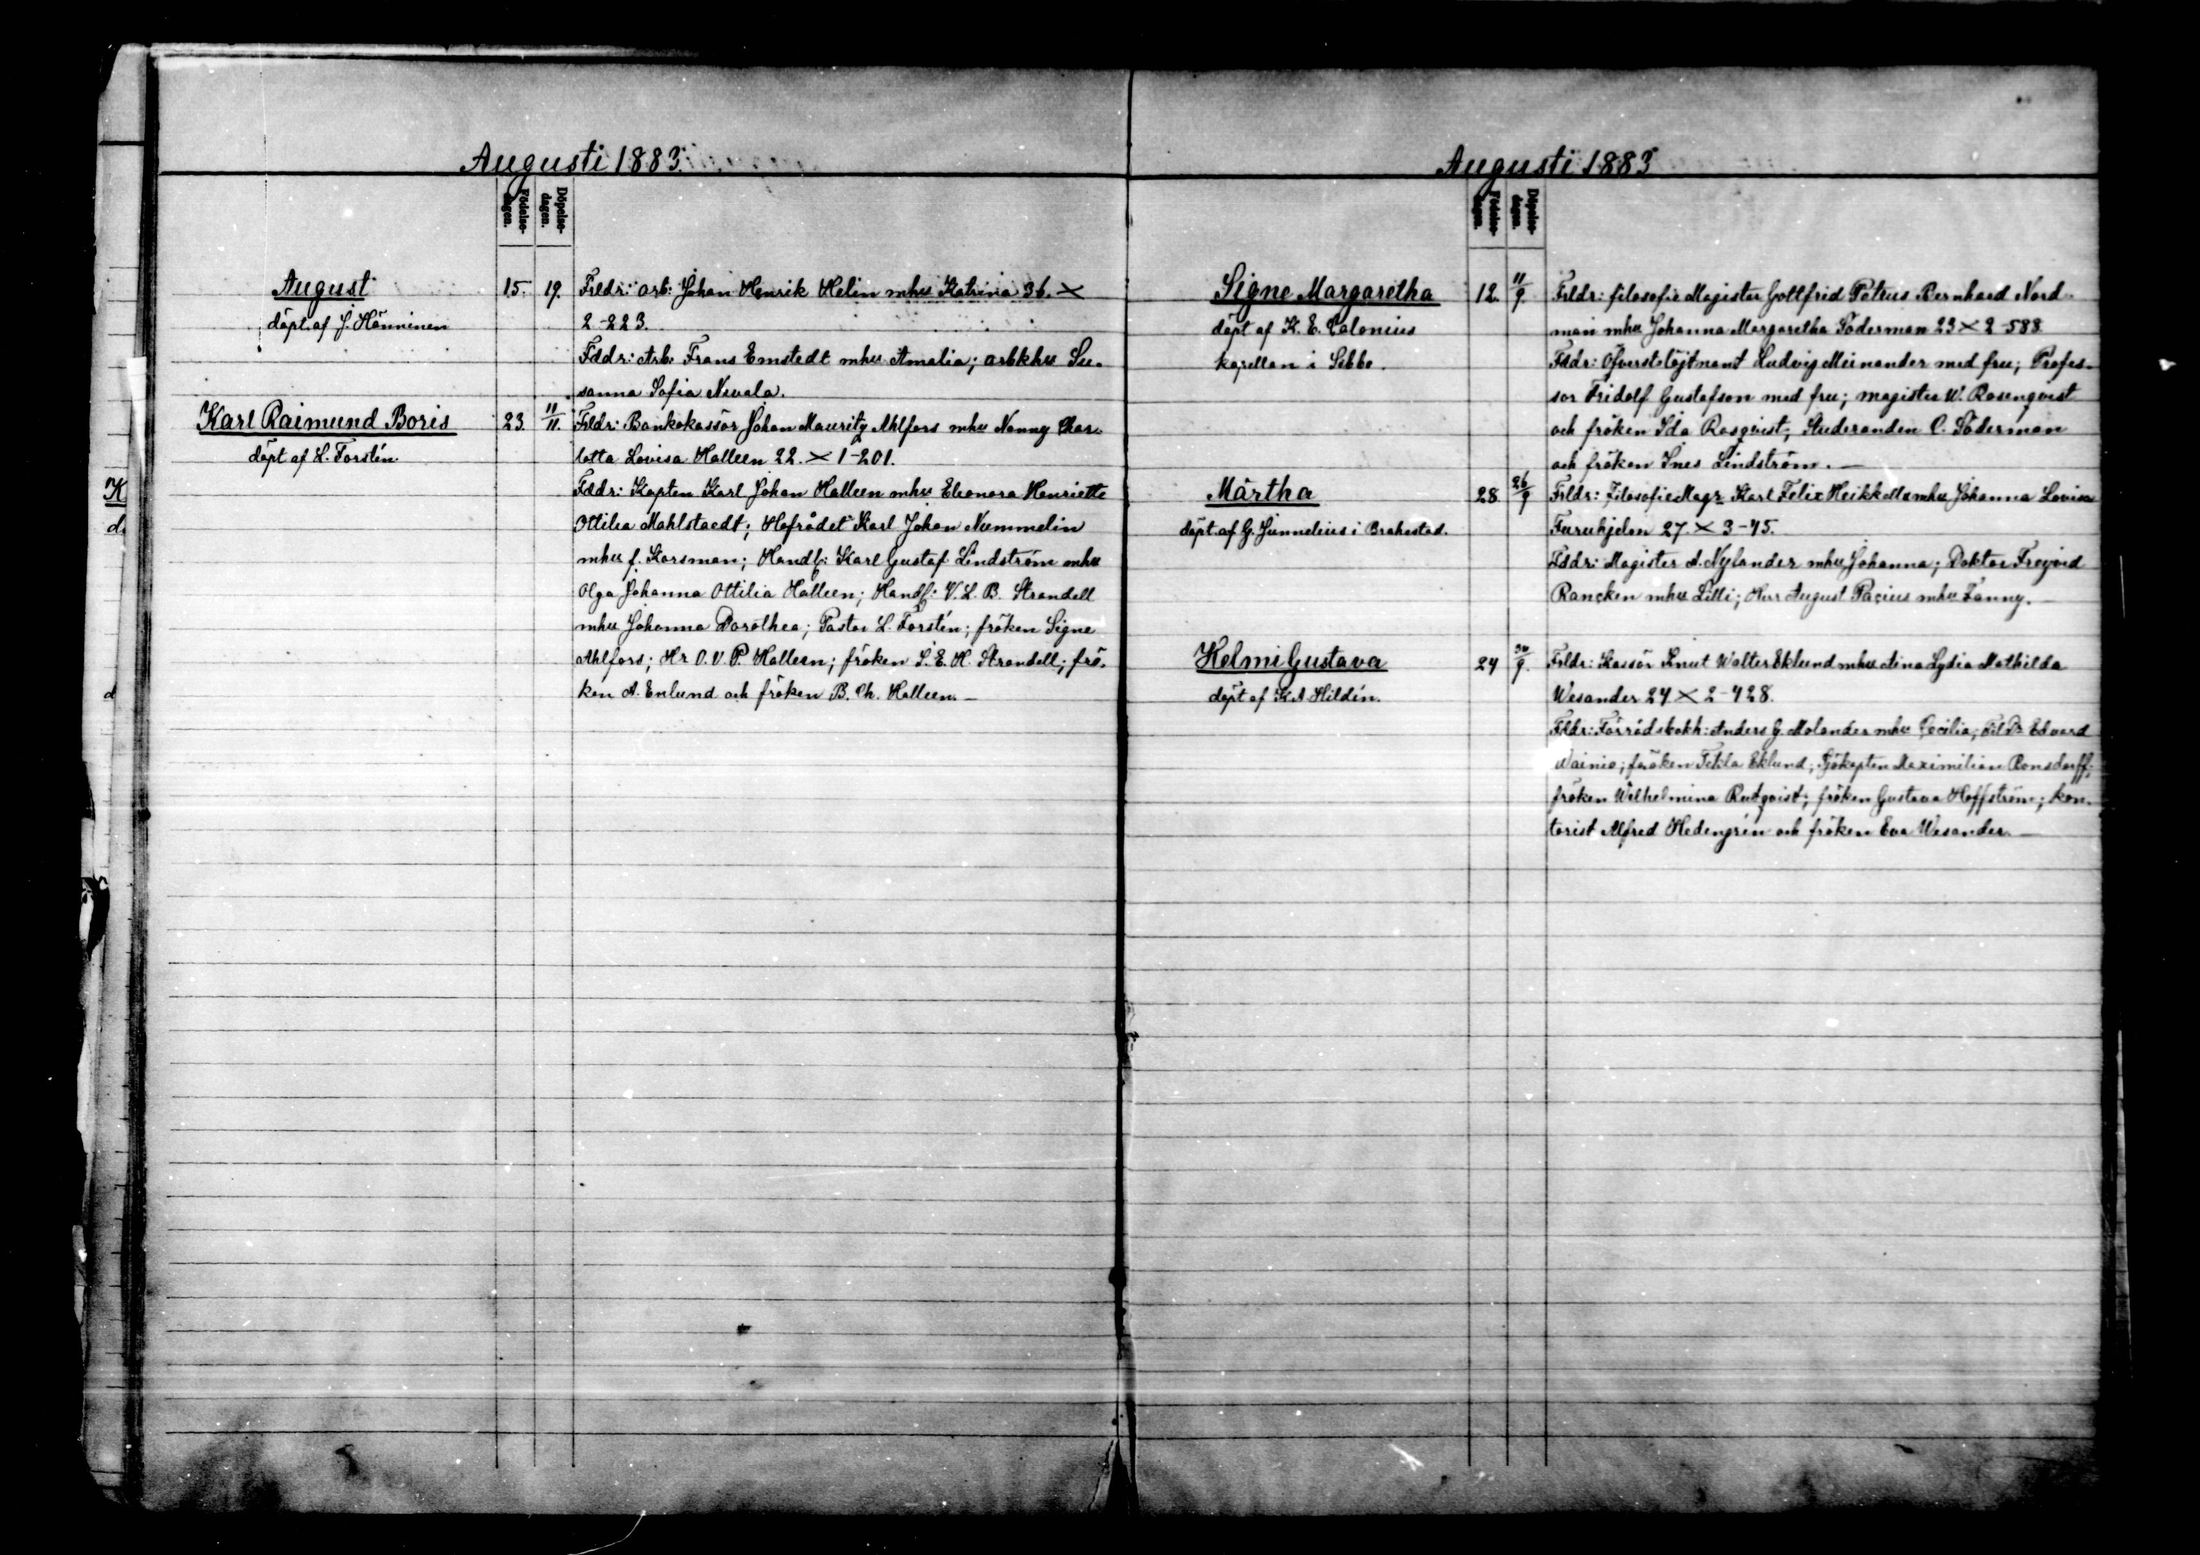 Augusti 1883.
Födelse-
dagen.
Döpelse-
dagen.
August
döpt af J. Hänninen
15. 19.
Frldr: arb: Johan Henrik Helin mhu Katrina 36. ×
2-223.
Fddr: Arb. Frans Emstedt mhu Amalia; arbkhu Su-
sanna Sofia Nevala.
Karl Raimund Boris
döpt af L. Forstén.
23. 11/11.
Frldr: Bankokassör Johan Mauritz Ahlfors mhu Nanny Char-
lotta Lovisa Halleen 22. × 1-201.
Fddr: Kapten Karl Johan Halleen mhu Eleonora Henriette
Ottilia Mahlstaedt; Hofrådet Karl Johan Nummelin
mhu f. Korsman; Handl: Karl Gustaf Lindström mhu
Olga Johanna Ottilia Halleen; Handl: V. L. B. Strandell
mhu Johanna Dorothea; Pastor L. Forstén; fröken Signe
Ahlfors; Hr O. V. P. Halleen; fröken S. E. H. Strandell; frö-
ken A. Enlund och fröken B. Ch. Halleen. —
K
d.
d
Augusti 1883
Födelse-
dagen.
Döpelse-
dagen.
Signe Margaretha
döpt af K. E. Calonius
kapellan i Sibbo.
12. 11/9.
Frldr: filosofie Magister Gottfrid Petrus Bernhard Nord-
man mhu Johanna Margaretha Söderman 23 × 2-588
Fddr: Öfverstelöjtnant Ludvig Meinander med fru; Profes-
sor Fridolf Gustafson med fru; magister W. Rosenqvist
och fröken Ida Rosqvist; Studeranden C. Söderman
och fröken Ines Lindström. —
Märtha
döpt af G. Sunnelius i Brahestad.
28 26/9
Frldr: Filosofie Magr Karl Felix Heikkell mhu Johanna Lovisa
Furuhjelm 27. × 3-45.
Fddr: Magister A. Nylander mhu Johanna; Doktor Freyvid
Rancken mhu Lilli; Herr August Pacius mhu Fanny. —
Helmi Gustava
döpt af K. A. Hildén.
24 /9.
Frldr: Kassör Knut Walter Eklund mhu Aina Lydia Mathilda
Wesander 24 × 2-428.
Fddr: Förrådsbokh: Anders G. Molander mhu Cecilia; Fil Dr Edvard
Wainio; fröken Tekla Eklund; Sjökapten Maximilian Bonsdorff;
fröken Wilhelmina Rutqvist; fröken Gustava Hoffström; kon-
torist Alfred Hedengrén och fröken Eva Wesander. —